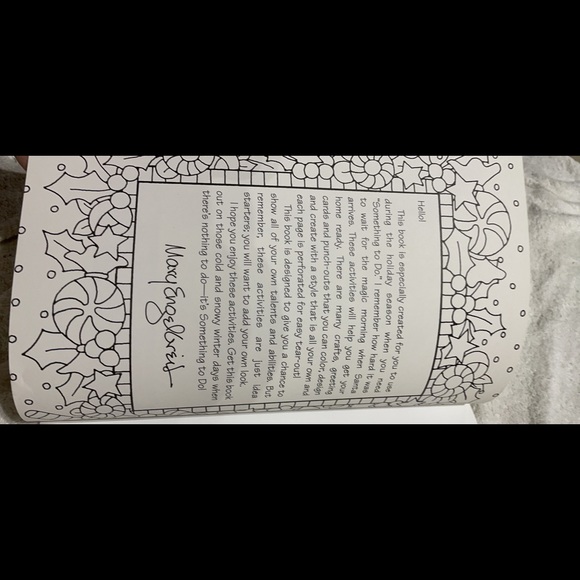 Hello!
This book is especially created for you to use
during the holiday season when you need
"Something to Do." I remember how hard it was
to wait for the magic morning when Santa
arrives. These activities will help you get your
home ready. There are many crafts, greeting
cards and punch-outs that you can color, design
and create with a style that is all your own and
each page is perforated for easy tear-out!
This book is designed to give you a chance to
show all of your own talents and abilities. But
remember, these activities are just idea
starters; you will want to add your own look.
I hope you enjoy these activities. Get this book
out on those cold and snowy winter days when
there's nothing to do—it's Something to Do!
Mary Engelbreit